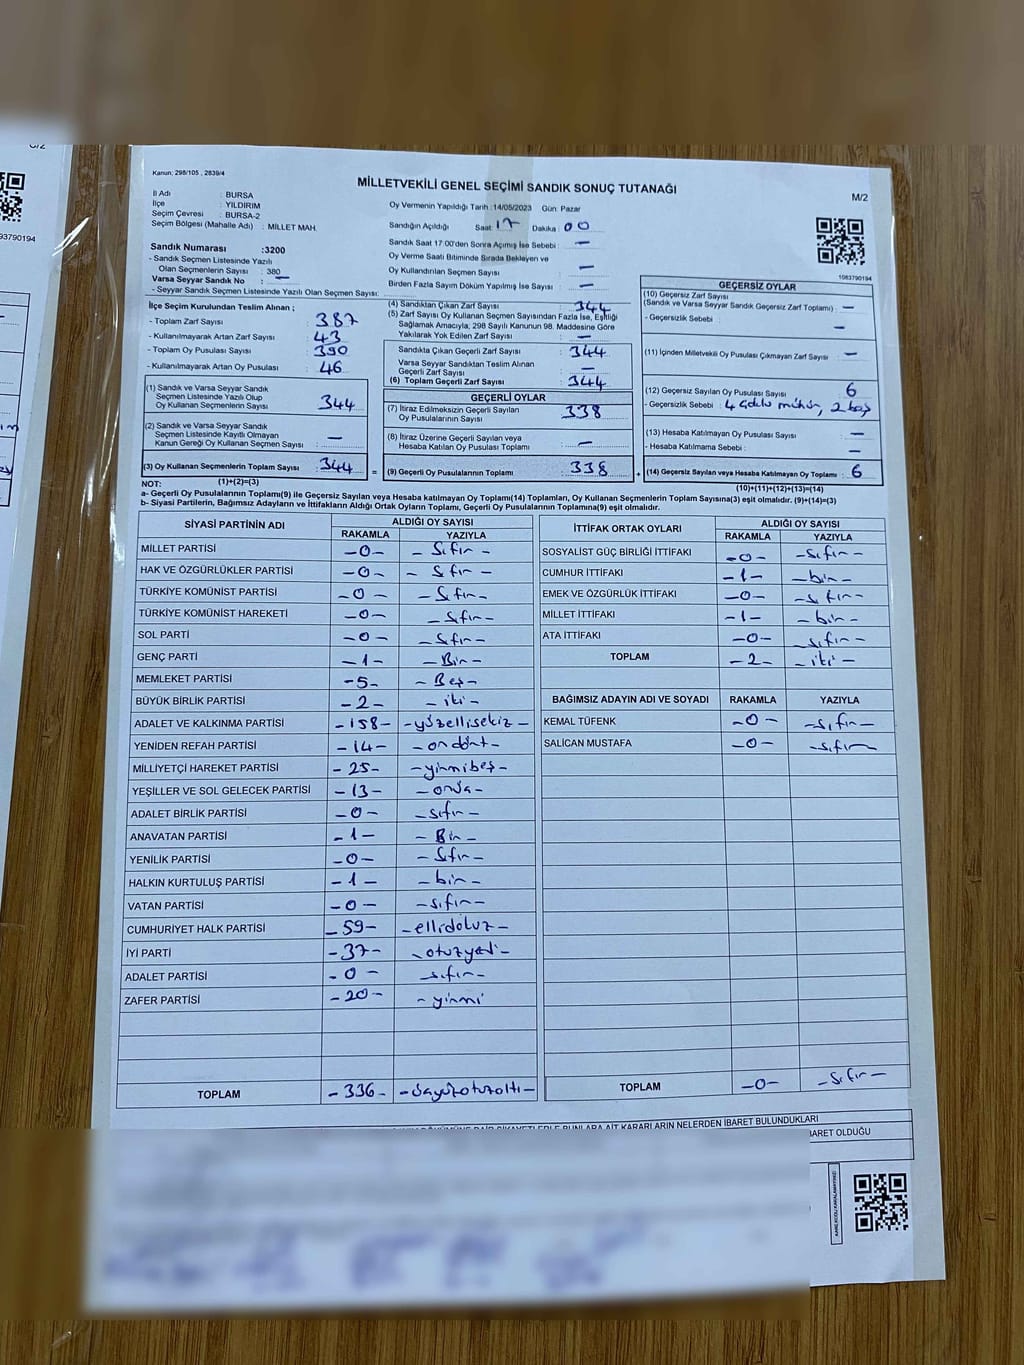 C/2
93790194
Kanun: 298/105 , 2839/4
MİLLETVEKİLİ GENEL SEÇİMİ SANDIK SONUÇ TUTANAĞI
M/2
İl Adı : BURSA
İlçe : YILDIRIM
Seçim Çevresi : BURSA-2
Seçim Bölgesi (Mahalle Adı) : MİLLET MAH.
Oy Vermenin Yapıldığı Tarih :14/05/2023 Gün: Pazar
Sandığın Açıldığı Saat: 17 Dakika : 00
Sandık Saat 17:00'den Sonra Açılmış İse Sebebi : —
Oy Verme Saati Bitiminde Sırada Bekleyen ve
Oy Kullandırılan Seçmen Sayısı : —
Birden Fazla Sayım Döküm Yapılmış İse Sayısı : —
1083790194
Sandık Numarası :3200
- Sandık Seçmen Listesinde Yazılı
Olan Seçmenlerin Sayısı : 380
Varsa Seyyar Sandık No : —
- Seyyar Sandık Seçmen Listesinde Yazılı Olan Seçmen Sayısı:
İlçe Seçim Kurulundan Teslim Alınan ;
- Toplam Zarf Sayısı : 387
- Kullanılmayarak Artan Zarf Sayısı : 43
- Toplam Oy Pusulası Sayısı : 390
- Kullanılmayarak Artan Oy Pusulası : 46
(1) Sandık ve Varsa Seyyar Sandık
Seçmen Listesinde Yazılı Olup
Oy Kullanan Seçmenlerin Sayısı : 344
(2) Sandık ve Varsa Seyyar Sandık
Seçmen Listesinde Kayıtlı Olmayan
Kanun Gereği Oy Kullanan Seçmen Sayısı : —
(3) Oy Kullanan Seçmenlerin Toplam Sayısı : 344 =
(1)+(2)=(3)
(4) Sandıktan Çıkan Zarf Sayısı : 344
(5) Zarf Sayısı Oy Kullanan Seçmen Sayısından Fazla İse, Eşitliği
Sağlamak Amacıyla; 298 Sayılı Kanunun 98. Maddesine Göre
Yakılarak Yok Edilen Zarf Sayısı : —
Sandıkta Çıkan Geçerli Zarf Sayısı : 344
Varsa Seyyar Sandıktan Teslim Alınan
Geçerli Zarf Sayısı : —
(6) Toplam Geçerli Zarf Sayısı : 344
GEÇERLİ OYLAR
(7) İtiraz Edilmeksizin Geçerli Sayılan
Oy Pusulalarının Sayısı : 338
(8) İtiraz Üzerine Geçerli Sayılan veya
Hesaba Katılan Oy Pusulası Sayısı : —
(9) Geçerli Oy Pusulalarının Toplamı : 338 +
GEÇERSİZ OYLAR
(10) Geçersiz Zarf Sayısı
(Sandık ve Varsa Seyyar Sandık Geçersiz Zarf Toplamı) : —
- Geçersizlik Sebebi : —
(11) İçinden Milletvekili Oy Pusulası Çıkmayan Zarf Sayısı : —
(12) Geçersiz Sayılan Oy Pusulası Sayısı : 6
- Geçersizlik Sebebi : 4 çoklu mühür, 2 boş
(13) Hesaba Katılmayan Oy Pusulası Sayısı : —
- Hesaba Katılmama Sebebi : —
(14) Geçersiz Sayılan veya Hesaba Katılmayan Oy Toplamı : 6
(10)+(11)+(12)+(13)=(14)
NOT:
a- Geçerli Oy Pusulalarının Toplamı(9) ile Geçersiz Sayılan veya Hesaba katılmayan Oy Toplamı(14) Toplamları, Oy Kullanan Seçmenlerin Toplam Sayısına(3) eşit olmalıdır. (9)+(14)=(3)
b- Siyasi Partilerin, Bağımsız Adayların ve İttifakların Aldığı Ortak Oyların Toplamı, Geçerli Oy Pusulalarının Toplamına(9) eşit olmalıdır.
SİYASİ PARTİNİN ADI ALDIĞI OY SAYISI
RAKAMLA YAZIYLA
MİLLET PARTİSİ -0- - Sıfır -
HAK VE ÖZGÜRLÜKLER PARTİSİ -0- - Sıfır -
TÜRKİYE KOMÜNİST PARTİSİ -0- - Sıfır -
TÜRKİYE KOMÜNİST HAREKETİ -0- - Sıfır -
SOL PARTİ -0- - Sıfır -
GENÇ PARTİ -1- - Bir -
MEMLEKET PARTİSİ -5- - Beş -
BÜYÜK BİRLİK PARTİSİ -2- - iki -
ADALET VE KALKINMA PARTİSİ -158- -yüzellisekiz -
YENİDEN REFAH PARTİSİ -14- -ondört-
MİLLİYETÇİ HAREKET PARTİSİ -25- -yirmibeş-
YEŞİLLER VE SOL GELECEK PARTİSİ -13- -onüç-
ADALET BİRLİK PARTİSİ -0- -sıfır-
ANAVATAN PARTİSİ -1- - Bir -
YENİLİK PARTİSİ -0- - Sıfır -
HALKIN KURTULUŞ PARTİSİ -1- -bir-
VATAN PARTİSİ -0- -sıfır-
CUMHURİYET HALK PARTİSİ -59- -ellidokuz-
İYİ PARTİ -37- -otuzyedi-
ADALET PARTİSİ -0- -sıfır-
ZAFER PARTİSİ -20- -yirmi
TOPLAM -336- -üçyüzotuzaltı-
İTTİFAK ORTAK OYLARI ALDIĞI OY SAYISI
RAKAMLA YAZIYLA
SOSYALİST GÜÇ BİRLİĞİ İTTİFAKI -0- -sıfır-
CUMHUR İTTİFAKI -1- -bir-
EMEK VE ÖZGÜRLÜK İTTİFAKI -0- -sıfır-
MİLLET İTTİFAKI -1- -bir-
ATA İTTİFAKI -0- -sıfır-
TOPLAM -2- -iki-
BAĞIMSIZ ADAYIN ADI VE SOYADI RAKAMLA YAZIYLA
KEMAL TÜFENK -0- -sıfır-
SALİCAN MUSTAFA -0- -sıfır-
TOPLAM -0- -sıfır-
KARARLARIN NELERDEN İBARET BULUNDUKLARI
BARET OLDUĞU